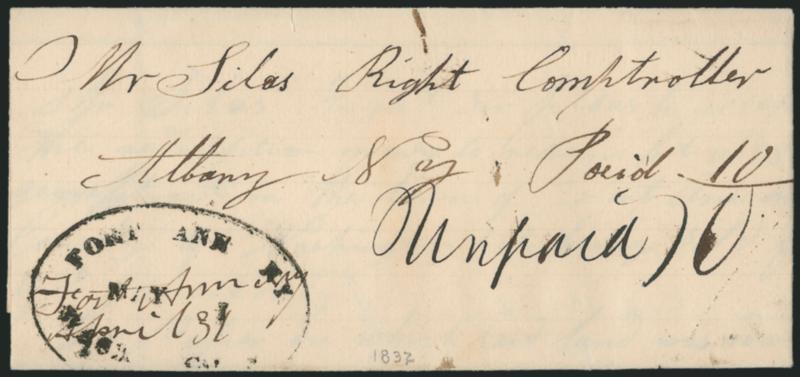 Mr Silas Right Comptroller
Albany N y Paid 10
Unpaid 10
FORT ANN NY
MAY 1
Fort Ann ny
April 31
1837